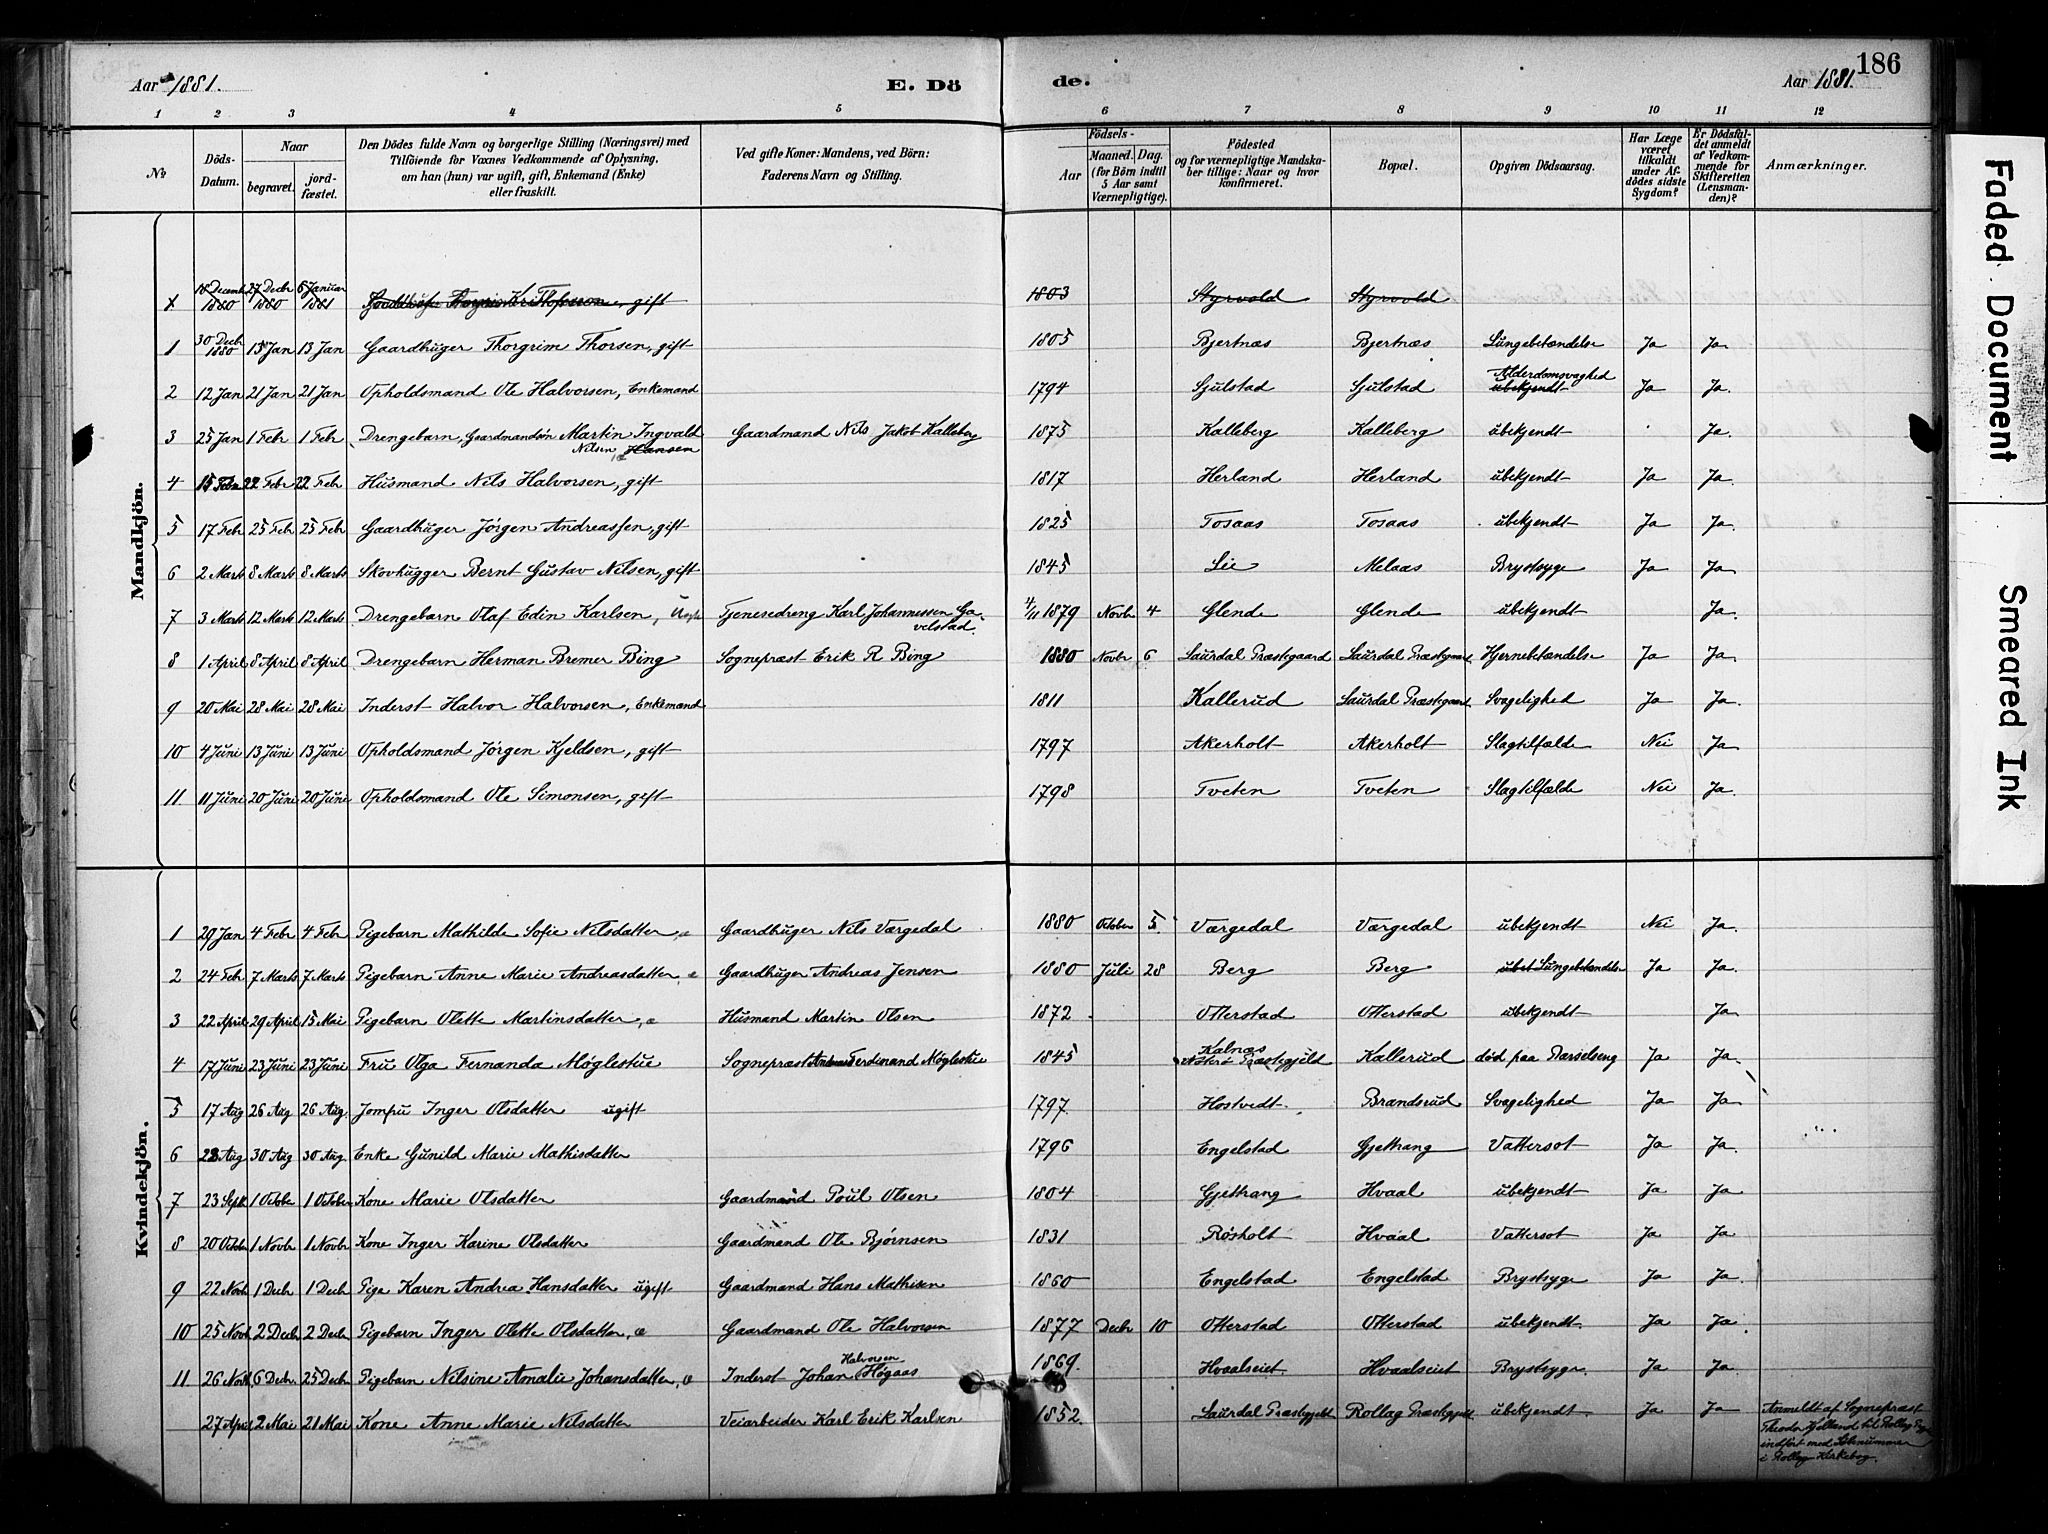 186
Aar 1881. E. Dö de. Aar 1881.
1 2 3 4 5 6 7 8 9 10 11 12
No
Döds-Datum.
Naar
begravet.
jordfæstet.
Den Dödes fulde Navn og borgerlige Stilling (Næringsvei) med
Tilföiende for Voxnes Vedkommende af Oplysning,
om han (hun) var ugift, gift, Enkemand (Enke)
eller fraskilt.
Ved gifte Koner: Mandens, ved Börn:
Faderens Navn og Stilling.
Födsels-
Aar
Maaned. Dag.
(for Börn indtil
5 Aar samt
Værnepligtige).
Födested
og for værnepligtige Mandska-
ber tillige: Naar og hvor
konfirmeret.
Bopæl.
Opgiven Dödsaarsag.
Har Læge
været
tilkaldt
under Af-
dödes sidste
Sygdom?
Er Dödsfal-
det anmeldt
af Vedkom-
mende for
Skifteretten
(Lensman-
den)?
Anmærkninger.
Mandkjön.
18 Decemb 1880 27 Decbr 1880 6 Januar 1881 Kristofferson, gift 1803 Styrvold Styrvold
1 30 Decb 1880 13 Jan 13 Jan Gaardbruger Thorgrim Thorsen, gift 1805 Bjertnæs Bjertnæs Lungebetændelse Ja Ja
2 12 Jan 21 Jan 21 Jan Opholdsmand Ole Halvorsen, Enkemand 1794 Sjulstad Sjulstad Alderdomsvaghed ubekjendt Ja Ja
3 25 Jan 1 Febr 1 Febr Drengebarn, Gaardmandsøn Martin Ingvald Nilsen Hansen Gaardmand Nils Jakob Kalleberg 1875 Kalleberg Kalleberg ubekjendt Ja
4 15 Febr 22 Febr 22 Febr Husmand Nils Halvorsen, gift 1817 Herland Herland ubekjendt Ja Ja
5 17 Febr 25 Feb 25 Feb Gaardbruger Jørgen Andreassen, gift 1825 Tosaas Tosaas ubekjendt Ja Ja
6 2 Marts 8 Marts 8 Marts Skovhugger Bernt Gustav Nilsen, gift 1845 Lie Melaas Brystsyge Ja Ja
7 3 Marts 12 Marts 12 Marts Drengebarn Olaf Edin Karlsen, Uægte Tjenesedreng Karl Johannessen Gavelstad 4/11 1879 Novbr 4 Glende Glende ubekjendt Ja
8 1 April 8 April 8 April Drengebarn Herman Bremer Bing Sognepræst Erik R Bing 1880 Novbr 6 Laurdal Præstegaard Laurdal Præstegaard Hjernebetændelse Ja Ja
9 20 Mai 28 Mai 28 Mai Inderst Halvor Halvorsen, Enkemand 1811 Kallerud Laurdal Præstegaard Svagelighed Ja Ja
10 4 Juni 13 Juni 13 Juni Opholdsmand Jørgen Kjeldsen, gift 1797 Akerholt Akerholt Slagtilfælde Nei Ja
11 11 Juni 20 Juni 20 Juni Opholdsmand Ole Simonsen, gift 1798 Tveten Tveten Slagtilfælde Nei Ja
Kvindekjön.
1 29 Jan 4 Febr 4 Febr Pigebarn Mathilde Sofie Nilsdatter, æ Gaardbruger Nils Værgedal 1880 October 5 Værgedal Værgedal ubekjendt Nei Ja
2 24 Feb 7 Marts 7 Marts Pigebarn Anne Marie Andreasdatter, æ Gaardbruger Andreas Jensen 1880 Juli 28 Berg Berg ubek Lungebetændelse Ja Ja
3 22 April 29 April 15 Mai Pigebarn Olette Martinsdatter, æ Husmand Martin Olsen 1872 Otterstad Otterstad ubekjendt Ja
4 17 Juni 23 Juni 23 Juni Fru Olga Fernanda Møglestue Sognepræst Andreas Ferdinand Møglestue 1845 Kalnæs Nøterø Præstegjeld Kallerud død paa Barselseng Ja Ja
5 17 Aug 26 Aug 26 Aug Jomfru Inger Olsdatter ugift 1797 Hostvedt Brandsrud Svagelighed Ja Ja
6 22 Aug 30 Aug 30 Aug Enke Gunild Marie Mathisdatter 1796 Engelstad Gjettrang Vattersot Ja Ja
7 23 Sept 1 October 1 October Kone Marie Olsdatter Gaardmand Poul Olsen 1804 Gjettrang Hvaal ubekjendt Ja Ja
8 20 Octobr 1 Novbr 1 Novbr Kone Inger Karine Olsdatter Gaardmand Ole Bjørnsen 1831 Røsholt Hvaal Vattersot Ja Ja
9 22 Novb 1 Decbr 1 Decbr Pige Karen Andrea Hansdatter ugift Gaardmand Hans Mathisen 1860 Engelstad Engelstad Brystsyge Ja Ja
10 25 Novb 2 Decbr 2 Decb Pigebarn Inger Olette Olsdatter, æ Gaardmand Ole Halvorsen 1877 Decbr 10 Otterstad Otterstad ubekjendt Ja Ja
11 26 Novb 6 Decb 25 Decb Pigebarn Nilsine Amalie Johansdatter, æ Inderst Johan Halvorsen Høgaas 1869. Hvaalseiet Hvaalseiet Brystsyge Ja Ja
27 April 2 Mai 21 Mai Kone Anne Marie Nilsdatter Veiarbeider Karl Erik Karlsen 1852. Laurdal Præstegjeld Rollag Præstegjeld ubekjendt Ja Ja Anmeldt af Sognepræst
Theodor Kjelland til Rollag
indført med Løbenummer
i Rollag Kirkebog.
Faded Document
Smeared Ink